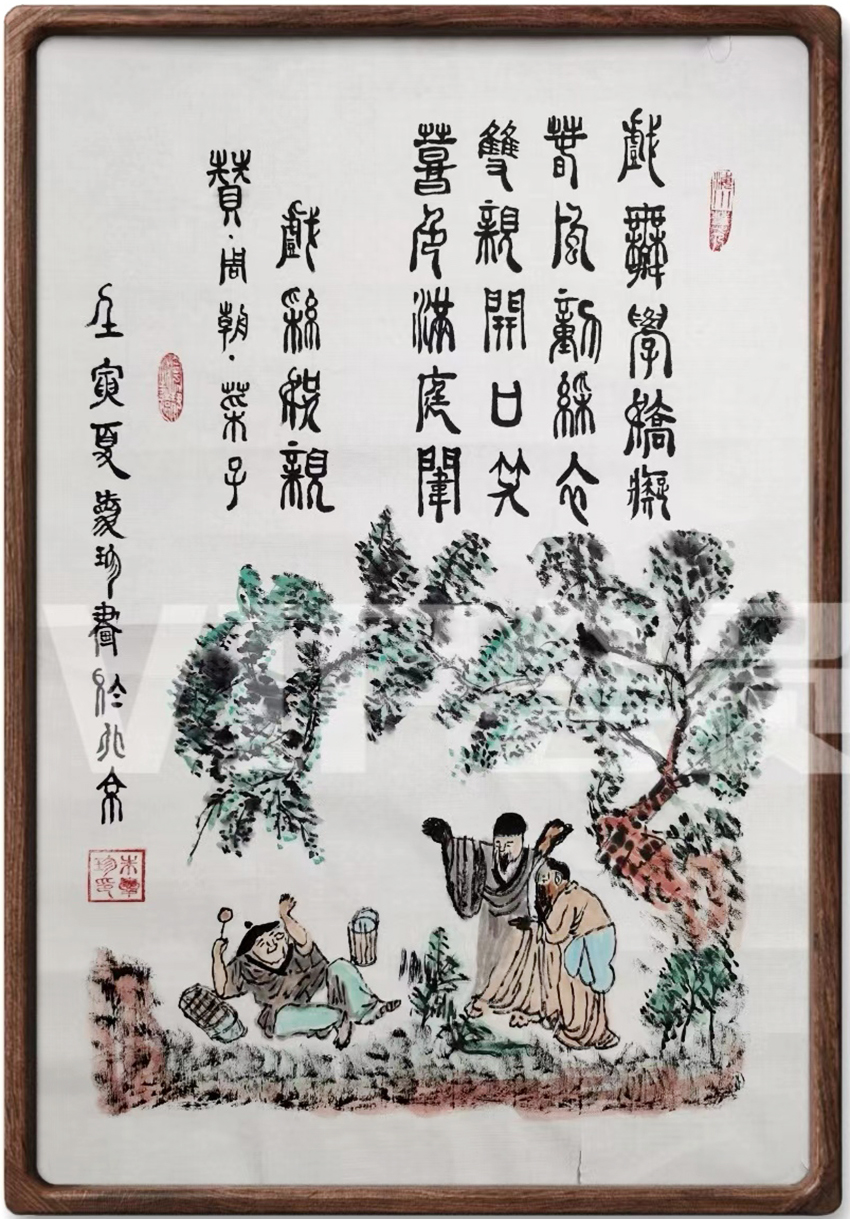 戲舞學嬌癡
春風動綵衣
雙親開口笑
喜色滿庭闈
戲彩娛親
贊·周朝·萊子
壬寅夏愛珍書於北京